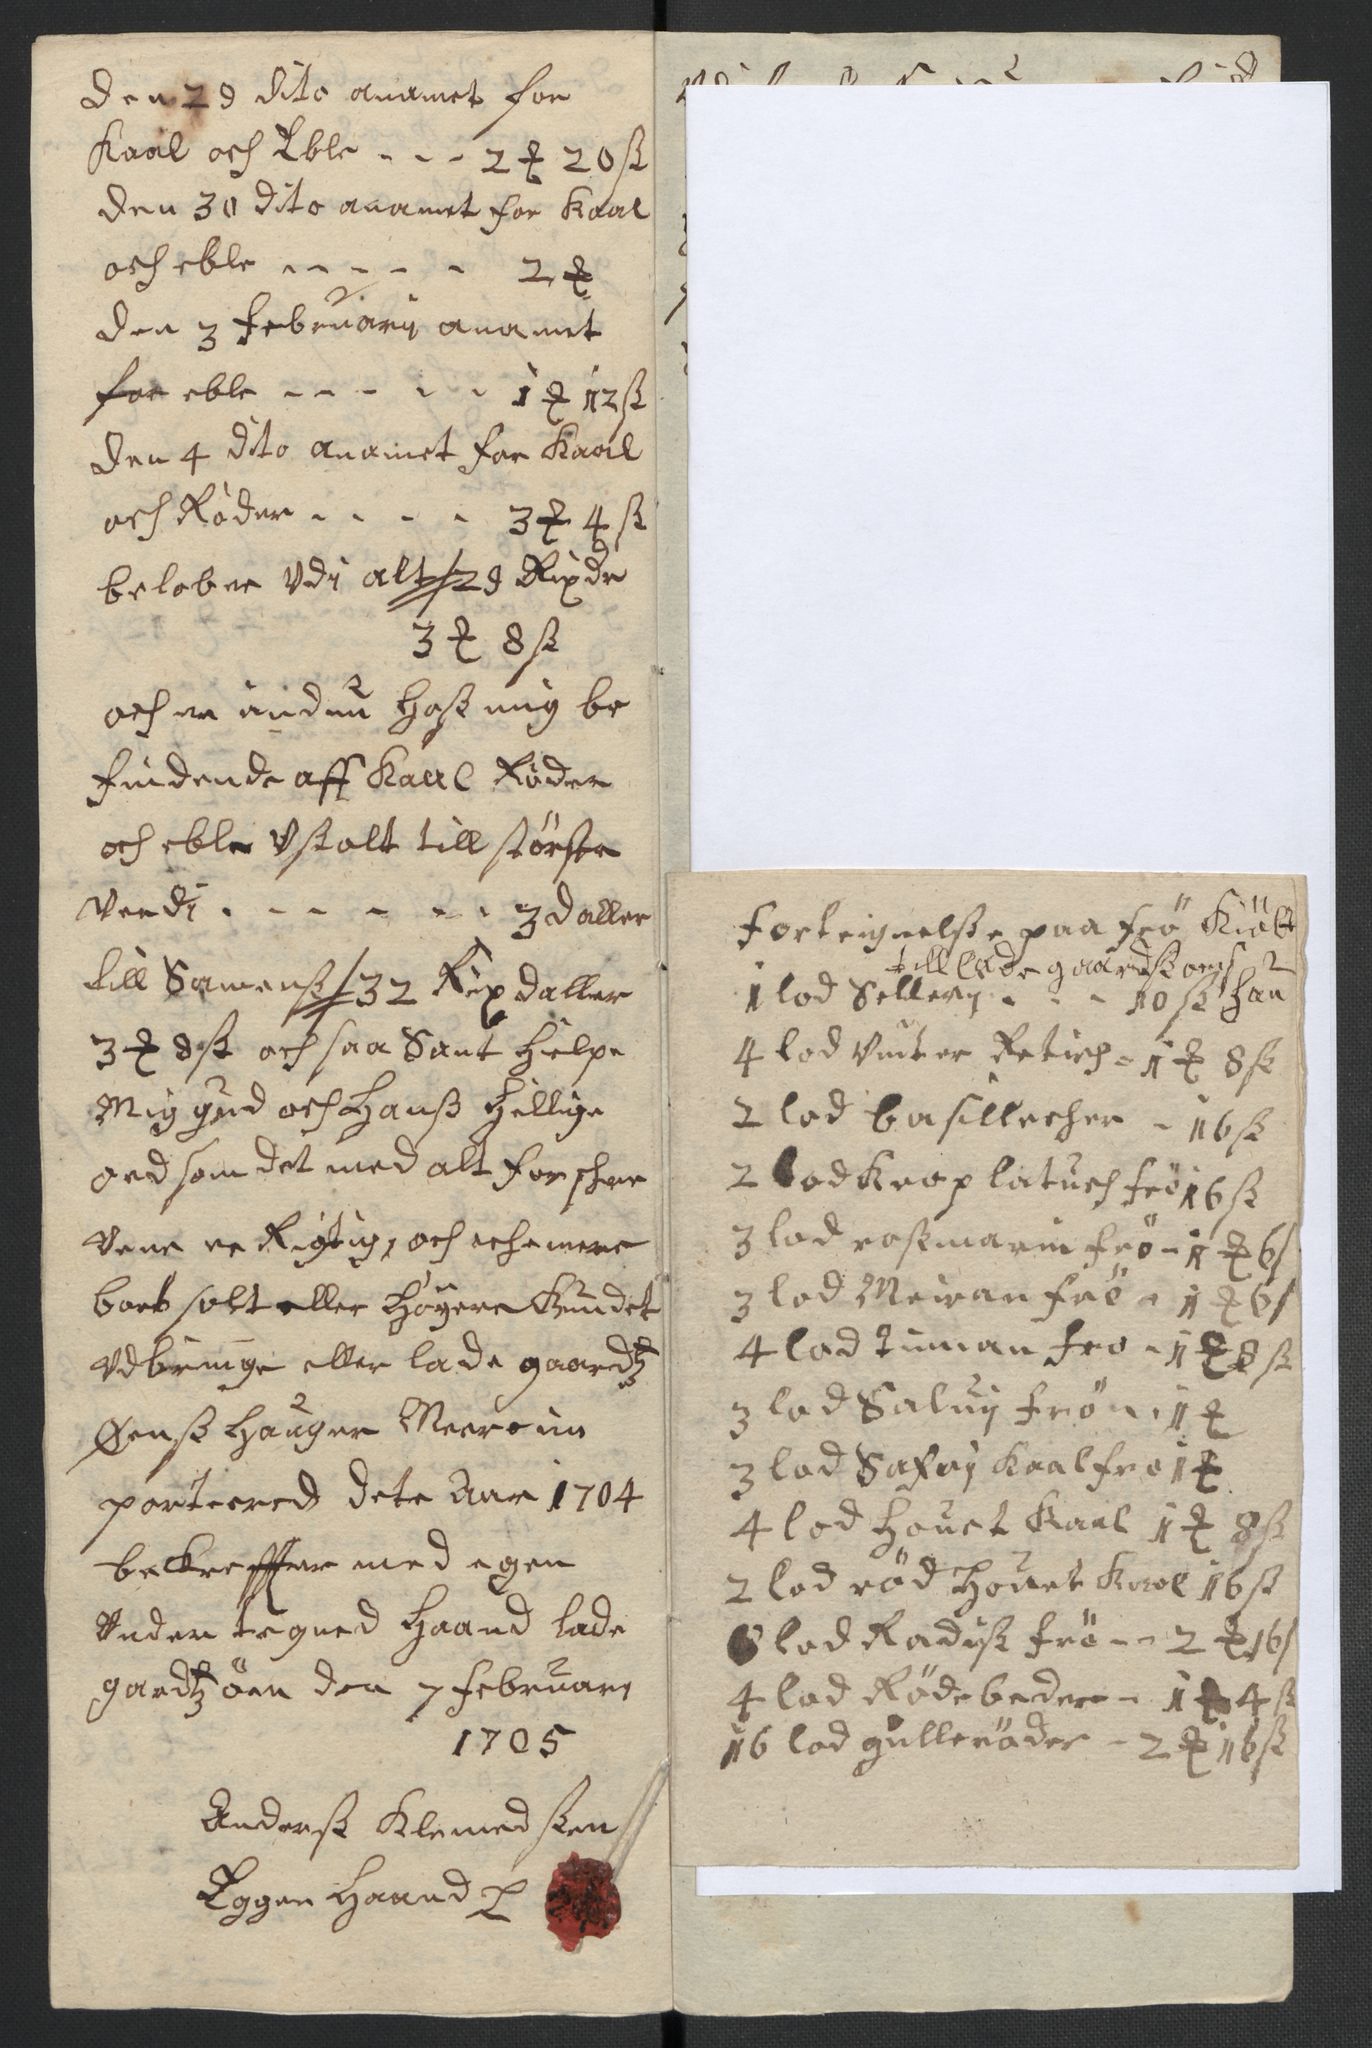 Den 29 dito anamet for
Kaal och Eble - - - 2 ₰ 20 ſk
den 30 dito anamet for Kaal
och eble - - - - - 2 ₰
den 3 februarij anamet
for eble - - - - - - 1 ₰ 12 ſk
den 4 dito anamet for Kaal
och Røder - - - - 3 ₰ 4 ſk
beløber Vdj alt 29 Rixdr
3 ₰ 8 ſk
och er ændnu hoſs mig be
findende aff Kaal Røder
och eble Vſolt till størſte
Verdj - - - - - - 3 daller
till Samenſs 32 Rixdaller
3 ₰ 8 ſk och saa Sant hielpe
Mig gud och Hanſs hellige
ord som det med alt forschre
vene er Rigtig, och eche mere
bort solt eller höyere Kundet
Vdbringe eller lade gaardtz
Øenſs hauger Meere im
porteered dete Aar 1704
bekreffter med egen
Vnder tegned haand lade
gardtz öen den 7 februarj
1705
Anderſs Klemedſsen
Eggen Haand
forteignelſse paa frö Kiöbt
till lade gaardſs öens hau
1 lod Sellerj - - - 10 ſk
4 lod vinter Retich - 1 ₰ 8 ſk
2 lod basillecher - 16 ſk
2 lod Krop latuch frö 16 ſk
3 lod roſsmarin frö - 1 ₰ 6 ſ
3 lod Meiran frö - 1 ₰ 6 ſ
4 lod timan fro - 1 ₰ 8 ſk
3 lod Saluij frö - - 1 ₰
3 lod Safoj Kaal fro 1 ₰
4 lod houet Kaal 1 ₰ 8 ſk
2 lod röd Houet Kaal 16 ſk
lod Radiſs frö - - 2 ₰ 16 ſ
4 lod Rödebeder - 1 ₰ 4 ſk
16 lod gulleröder - 2 ₰ 16 ſk